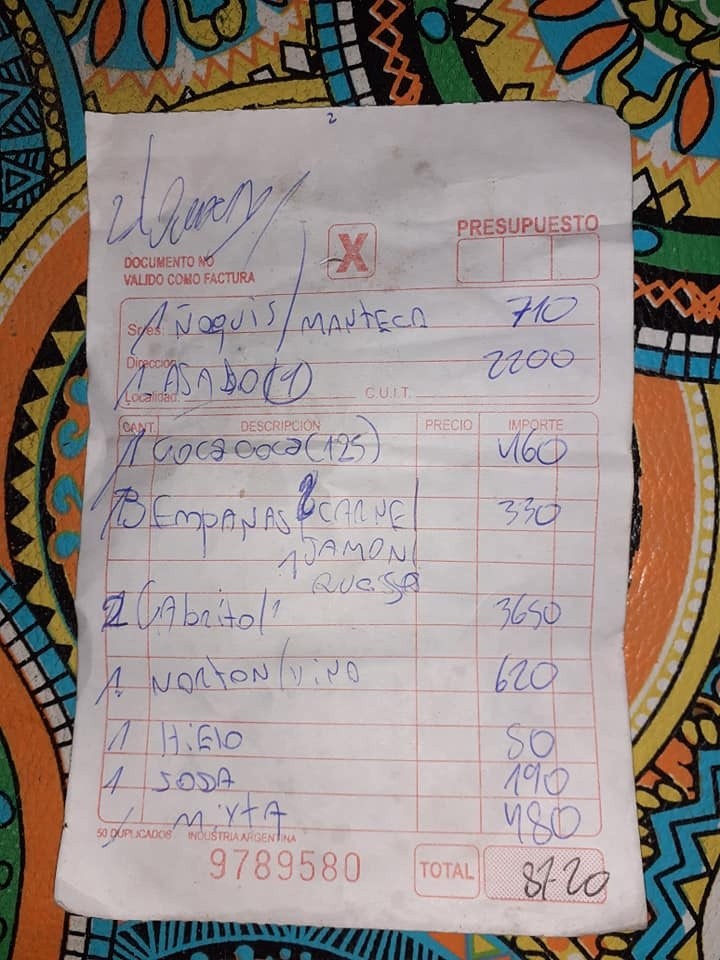 2
DOCUMENTO NO
VALIDO COMO FACTURA
X
PRESUPUESTO
Sres. 1 ÑOQUIS/MANTECA 710
Dirección 2200
Localidad: 1 ASADO (1) C.U.I.T.
CANT. DESCRIPCIÓN PRECIO IMPORTE
1 COCA COCA (125) 460
3 EMPANAS 2 CARNE 330
1 JAMON
QUESSO
2 CABrito/1 3650
1. NORTON/VINO 620
1 HiElO 50
1 SODA 190
1 MiXTA 480
50 DUPLICADOS INDUSTRIA ARGENTINA
9789580
TOTAL